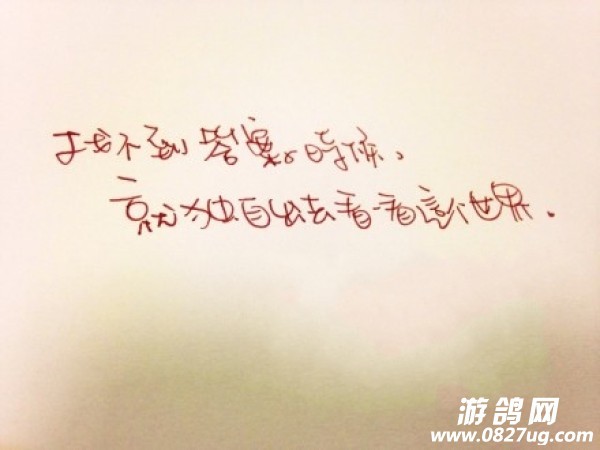 找不到答案時候、
就独自出去看一看這个世界.
游鸽网
www.0827ug.com